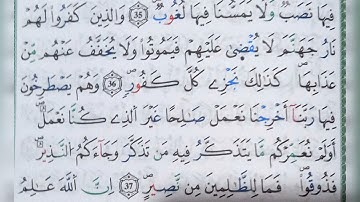 فِيهَا نَصَبٌ وَلَا يَمَسُّنَا فِيهَا لُغُوبٌ ۝35 وَالَّذِينَ كَفَرُوا لَهُمْ
نَارُ جَهَنَّمَ لَا يُقْضَىٰ عَلَيْهِمْ فَيَمُوتُوا وَلَا يُخَفَّفُ عَنْهُم مِّنْ
عَذَابِهَا ۚ كَذَٰلِكَ نَجْزِي كُلَّ كَفُورٍ ۝36 وَهُمْ يَصْطَرِخُونَ
فِيهَا رَبَّنَا أَخْرِجْنَا نَعْمَلْ صَالِحًا غَيْرَ الَّذِي كُنَّا نَعْمَلُ ۚ
أَوَلَمْ نُعَمِّرْكُم مَّا يَتَذَكَّرُ فِيهِ مَن تَذَكَّرَ وَجَاءَكُمُ النَّذِيرُ ۖ
فَذُوقُوا فَمَا لِلظَّالِمِينَ مِن نَّصِيرٍ ۝37 إِنَّ اللَّهَ عَالِمُ